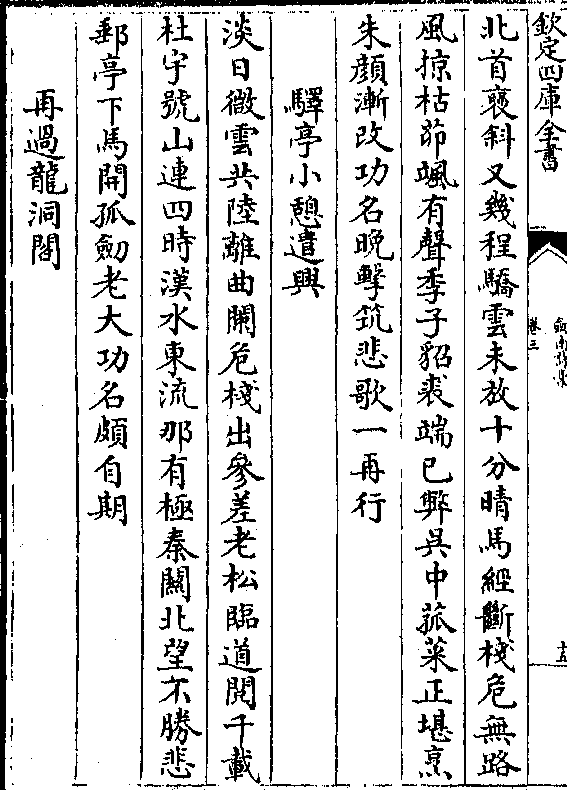 欽定四庫全書
劔南詩槀
卷三
十五
北首襃斜又幾程驕雲未放十分晴馬經斷棧危無路
風掠枯茆颯有聲季子貂裘端已弊吳中菰菜正堪烹
朱顔漸改功名晚擊筑悲歌一再行
驛亭小憩遣興
淡日微雲共陸離曲闌危棧出參差老松臨道閱千載
杜宇號山連四時漢水東流那有極秦關北望不勝悲
郵亭下馬開孤劒老大功名頗自期
再過龍洞閣